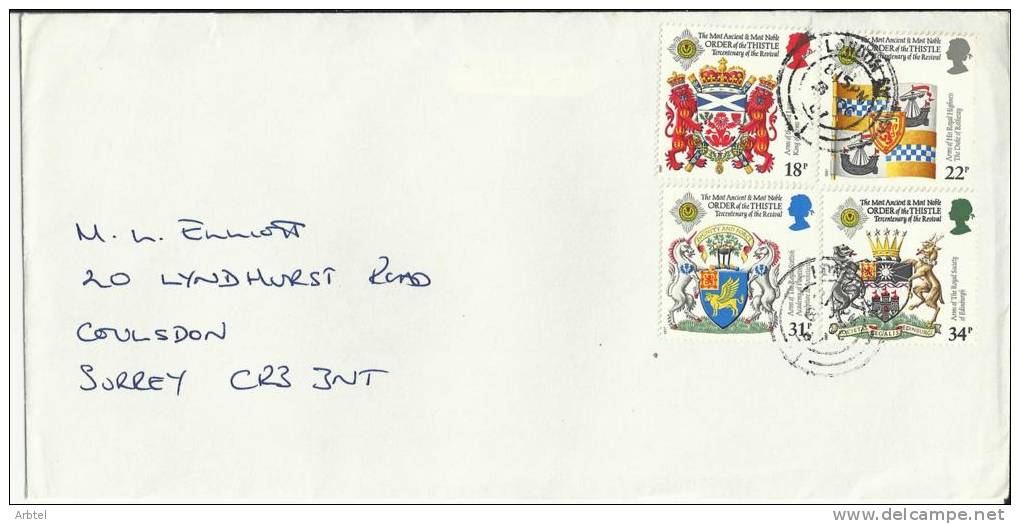 The Most Ancient & Most Noble
ORDER of the THISTLE
Tercentenary of the Revival
18P
The Most Ancient & Most Noble
ORDER of the THISTLE
Tercentenary of the Revival
Arms of His Royal Highness
The Duke of Rothesay
22P
LONDON
The Most Ancient & Most Noble
ORDER of the THISTLE
Tercentenary of the Revival
31P
The Most Ancient & Most Noble
ORDER of the THISTLE
Tercentenary of the Revival
Arms of The Royal Society
of Edinburgh
34P
M. L. ELLIOTT
20 LYNDHURST ROAD
COULSDON
SURREY CR3 3NT
Arbtel
delcampe.net